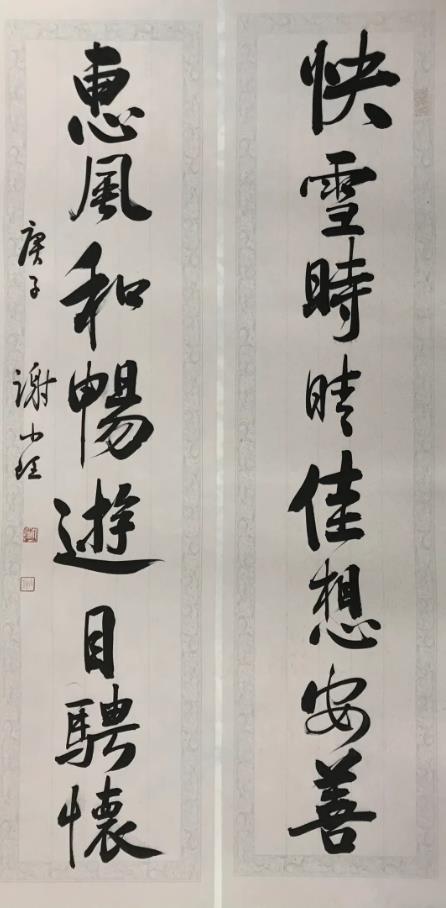 快雪時晴佳想安善
惠風和暢遊目騁懷
庚子 謝小